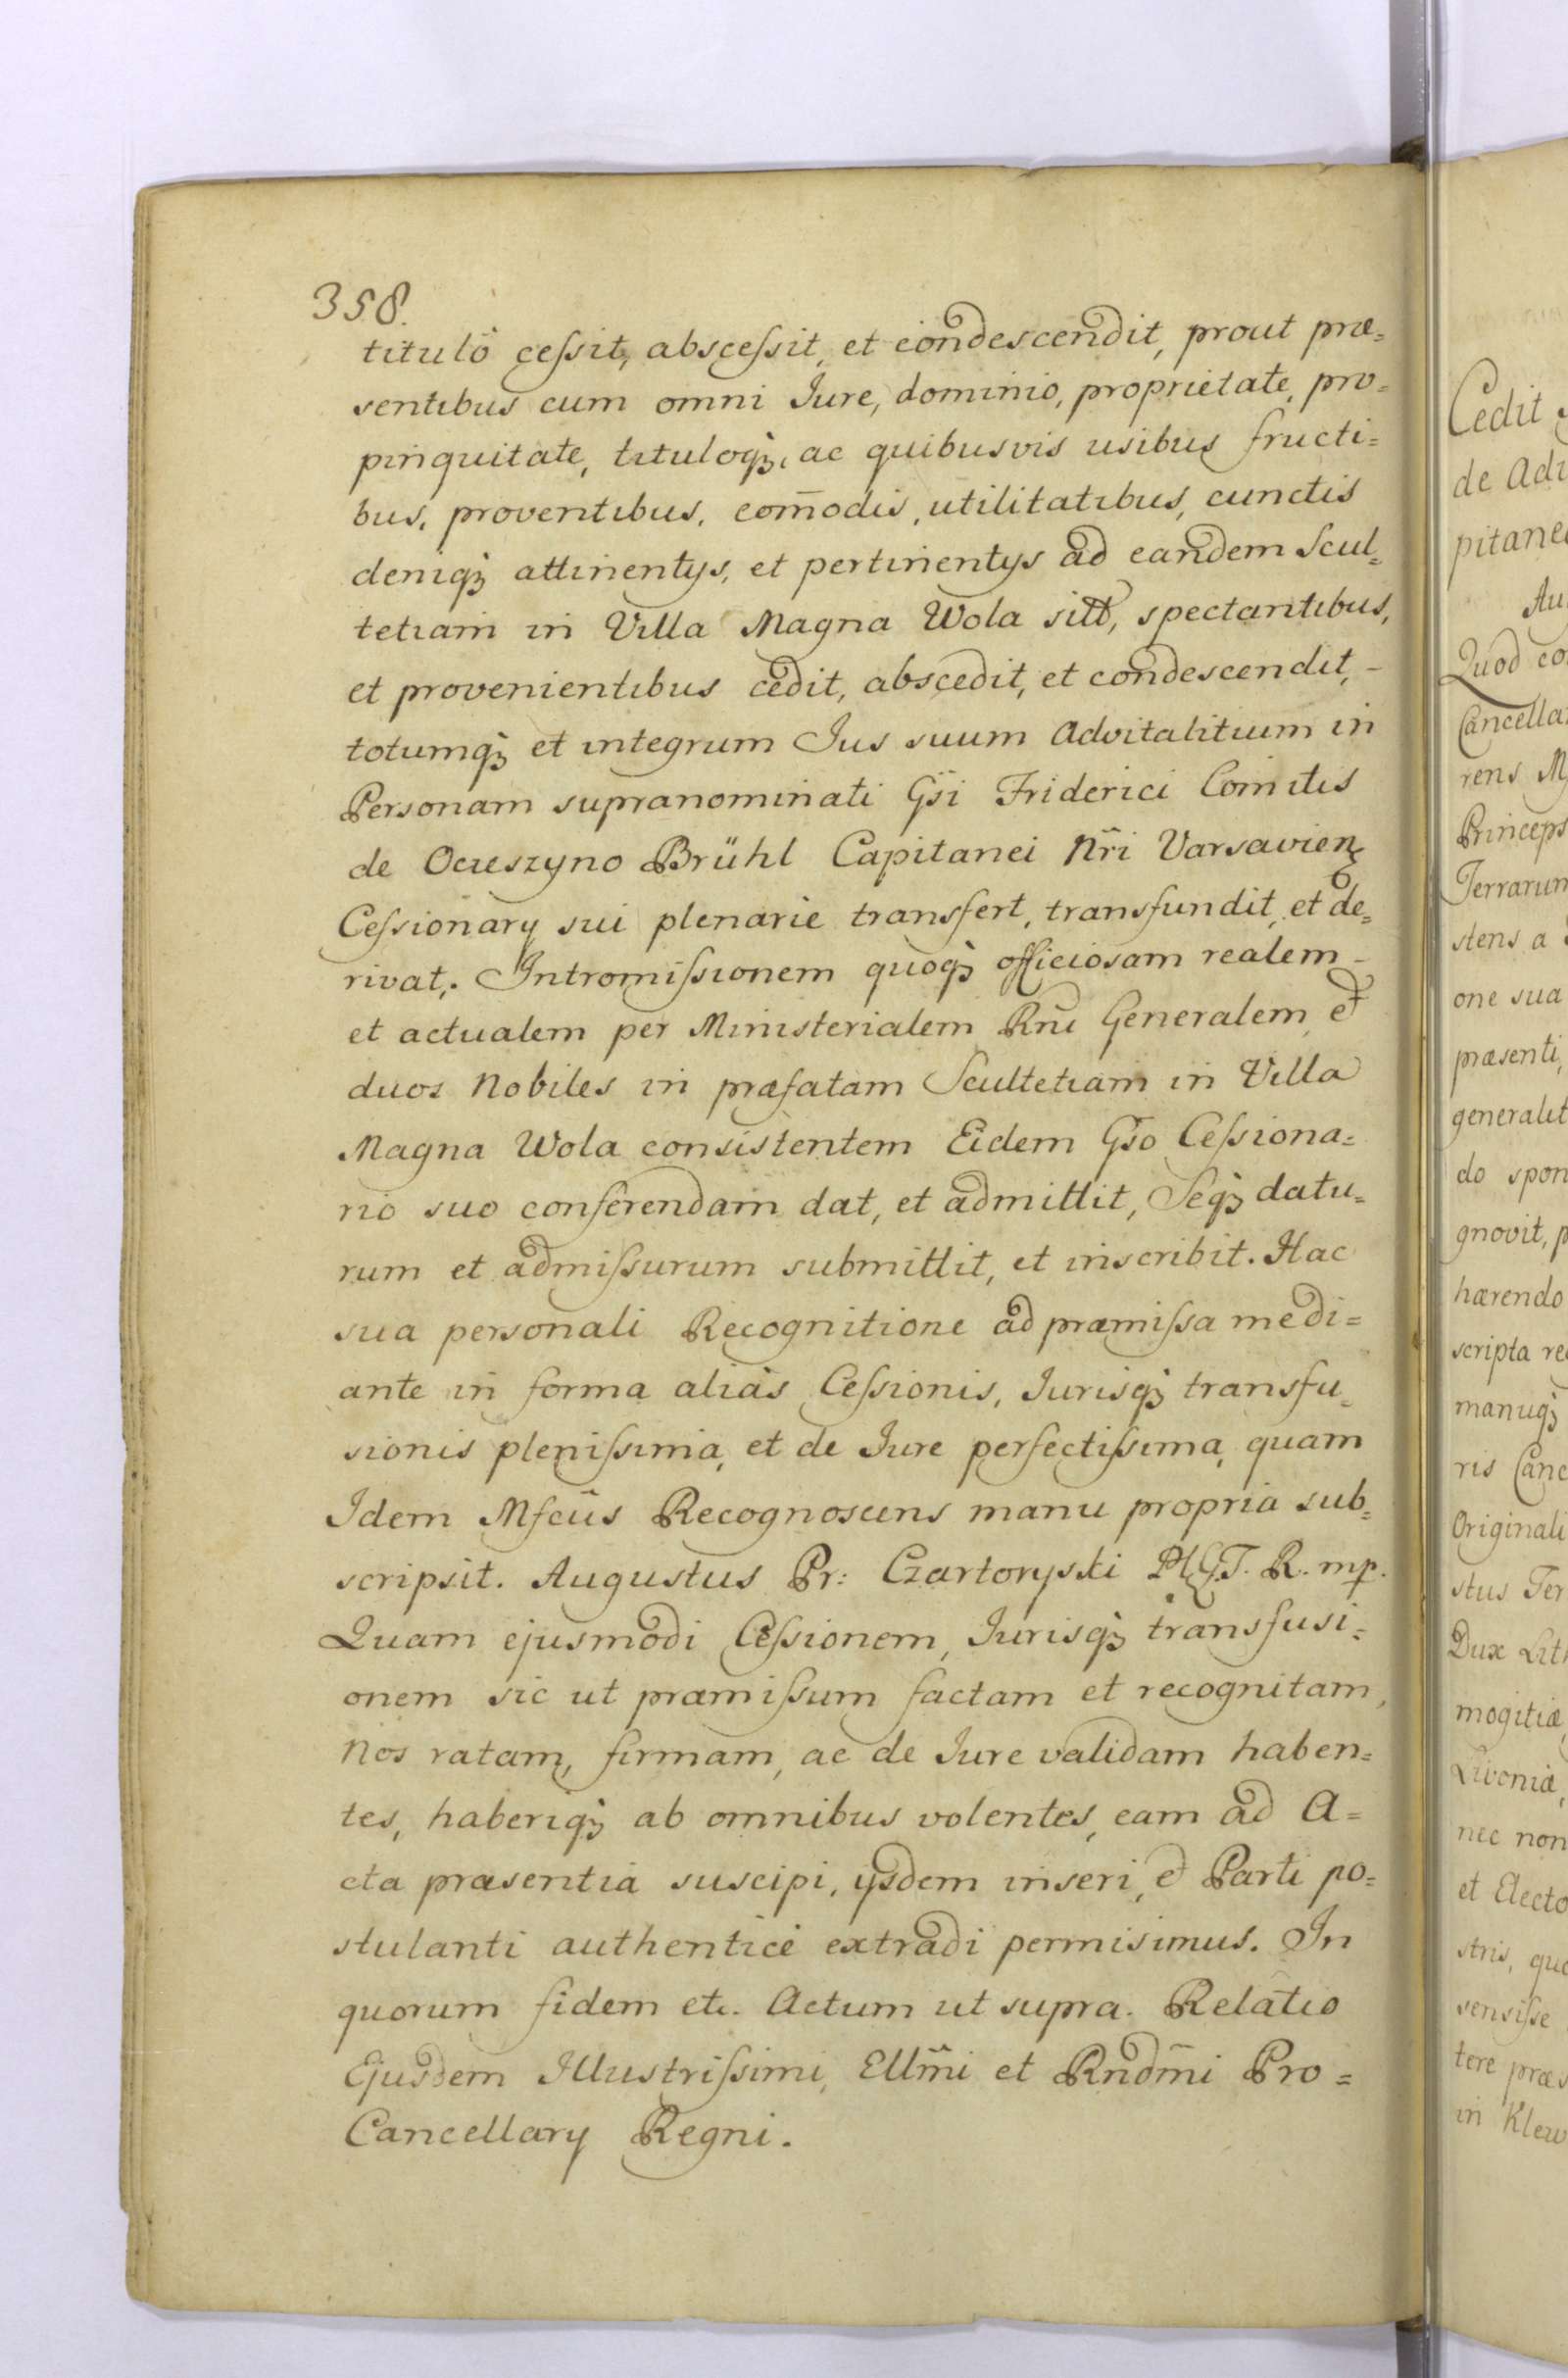 358.
titulô cessit, abscessit, et condescendit, prout præ=
sentibus cum omni Jure, dominio, proprietate, pro=
pinquitate, tituloq3, ac quibusvis usibus fructi=
bus, proventibus, com̄odis, utilitatibus, cunctis
deniq3 attinentijs, et pertinentijs ad eandem Scul=
tetiam in Villa Magna Wola sitt, spectantibus,
et provenientibus cedit, abscedit, et condescendit, -
totumq3 et integrum Jus suum Advitalitium in
Personam supranominati Gsi Friderici Comitis
de Ocieszyno Brühl Capitanei Nr̃i Varsavien
Cessionarij sui plenarie transfert, transfundit, et de=
rivat. Intromissionem quoq3 officiosam realem -
et actualem per Ministerialem Rñi Generalem et
duos Nobiles in præfatam Scultetiam in Villa
Magna Wola consistentem Eidem Gso Cessiona=
rio suo conferendam dat, et admittit, Seq3 datu=
rum et admissurum submittit, et inscribit. Hac
sua personali Recognitione ad præmissa medi=
ante in forma alias Cessionis, Jurisq3 transfu=
sionis plenissima, et de Jure perfectissima, quam
Idem Mfcus Recognoscens manu propria sub=
scripsit. Augustus Pr: Czartoryski P.G.T. R. mp.
Quam ejusmodi Cessionem, Jurisq3 transfusi=
onem sic ut præmissum factam et recognitam,
Nos ratam, firmam, ac de Jure validam haben=
tes, haberiq3 ab omnibus volentes, eam ad A=
cta præsentia suscipi, ijsdem inseri, et Parti po=
stulanti authentice extradi permisimus. In
quorum fidem etc. Actum ut supra. Relatio
Ejusdem Illustrissimi, Ellm̃i et Rndm̃i Pro=
Cancellarij Regni.
Cedit
de Adv
pitane
Au
Quod co
Cancella
rens M
Princeps
Terrarum
stens a
one sua
præsenti,
generalit
do spon
gnovit, p
hærendo
scripta re
manuq3
ris Canc
Originali
stus Ter
Dux Lith
mogitiæ,
Livoniæ,
nec non
et Electo
stris, quo
sensisse
tere præs
in Klew